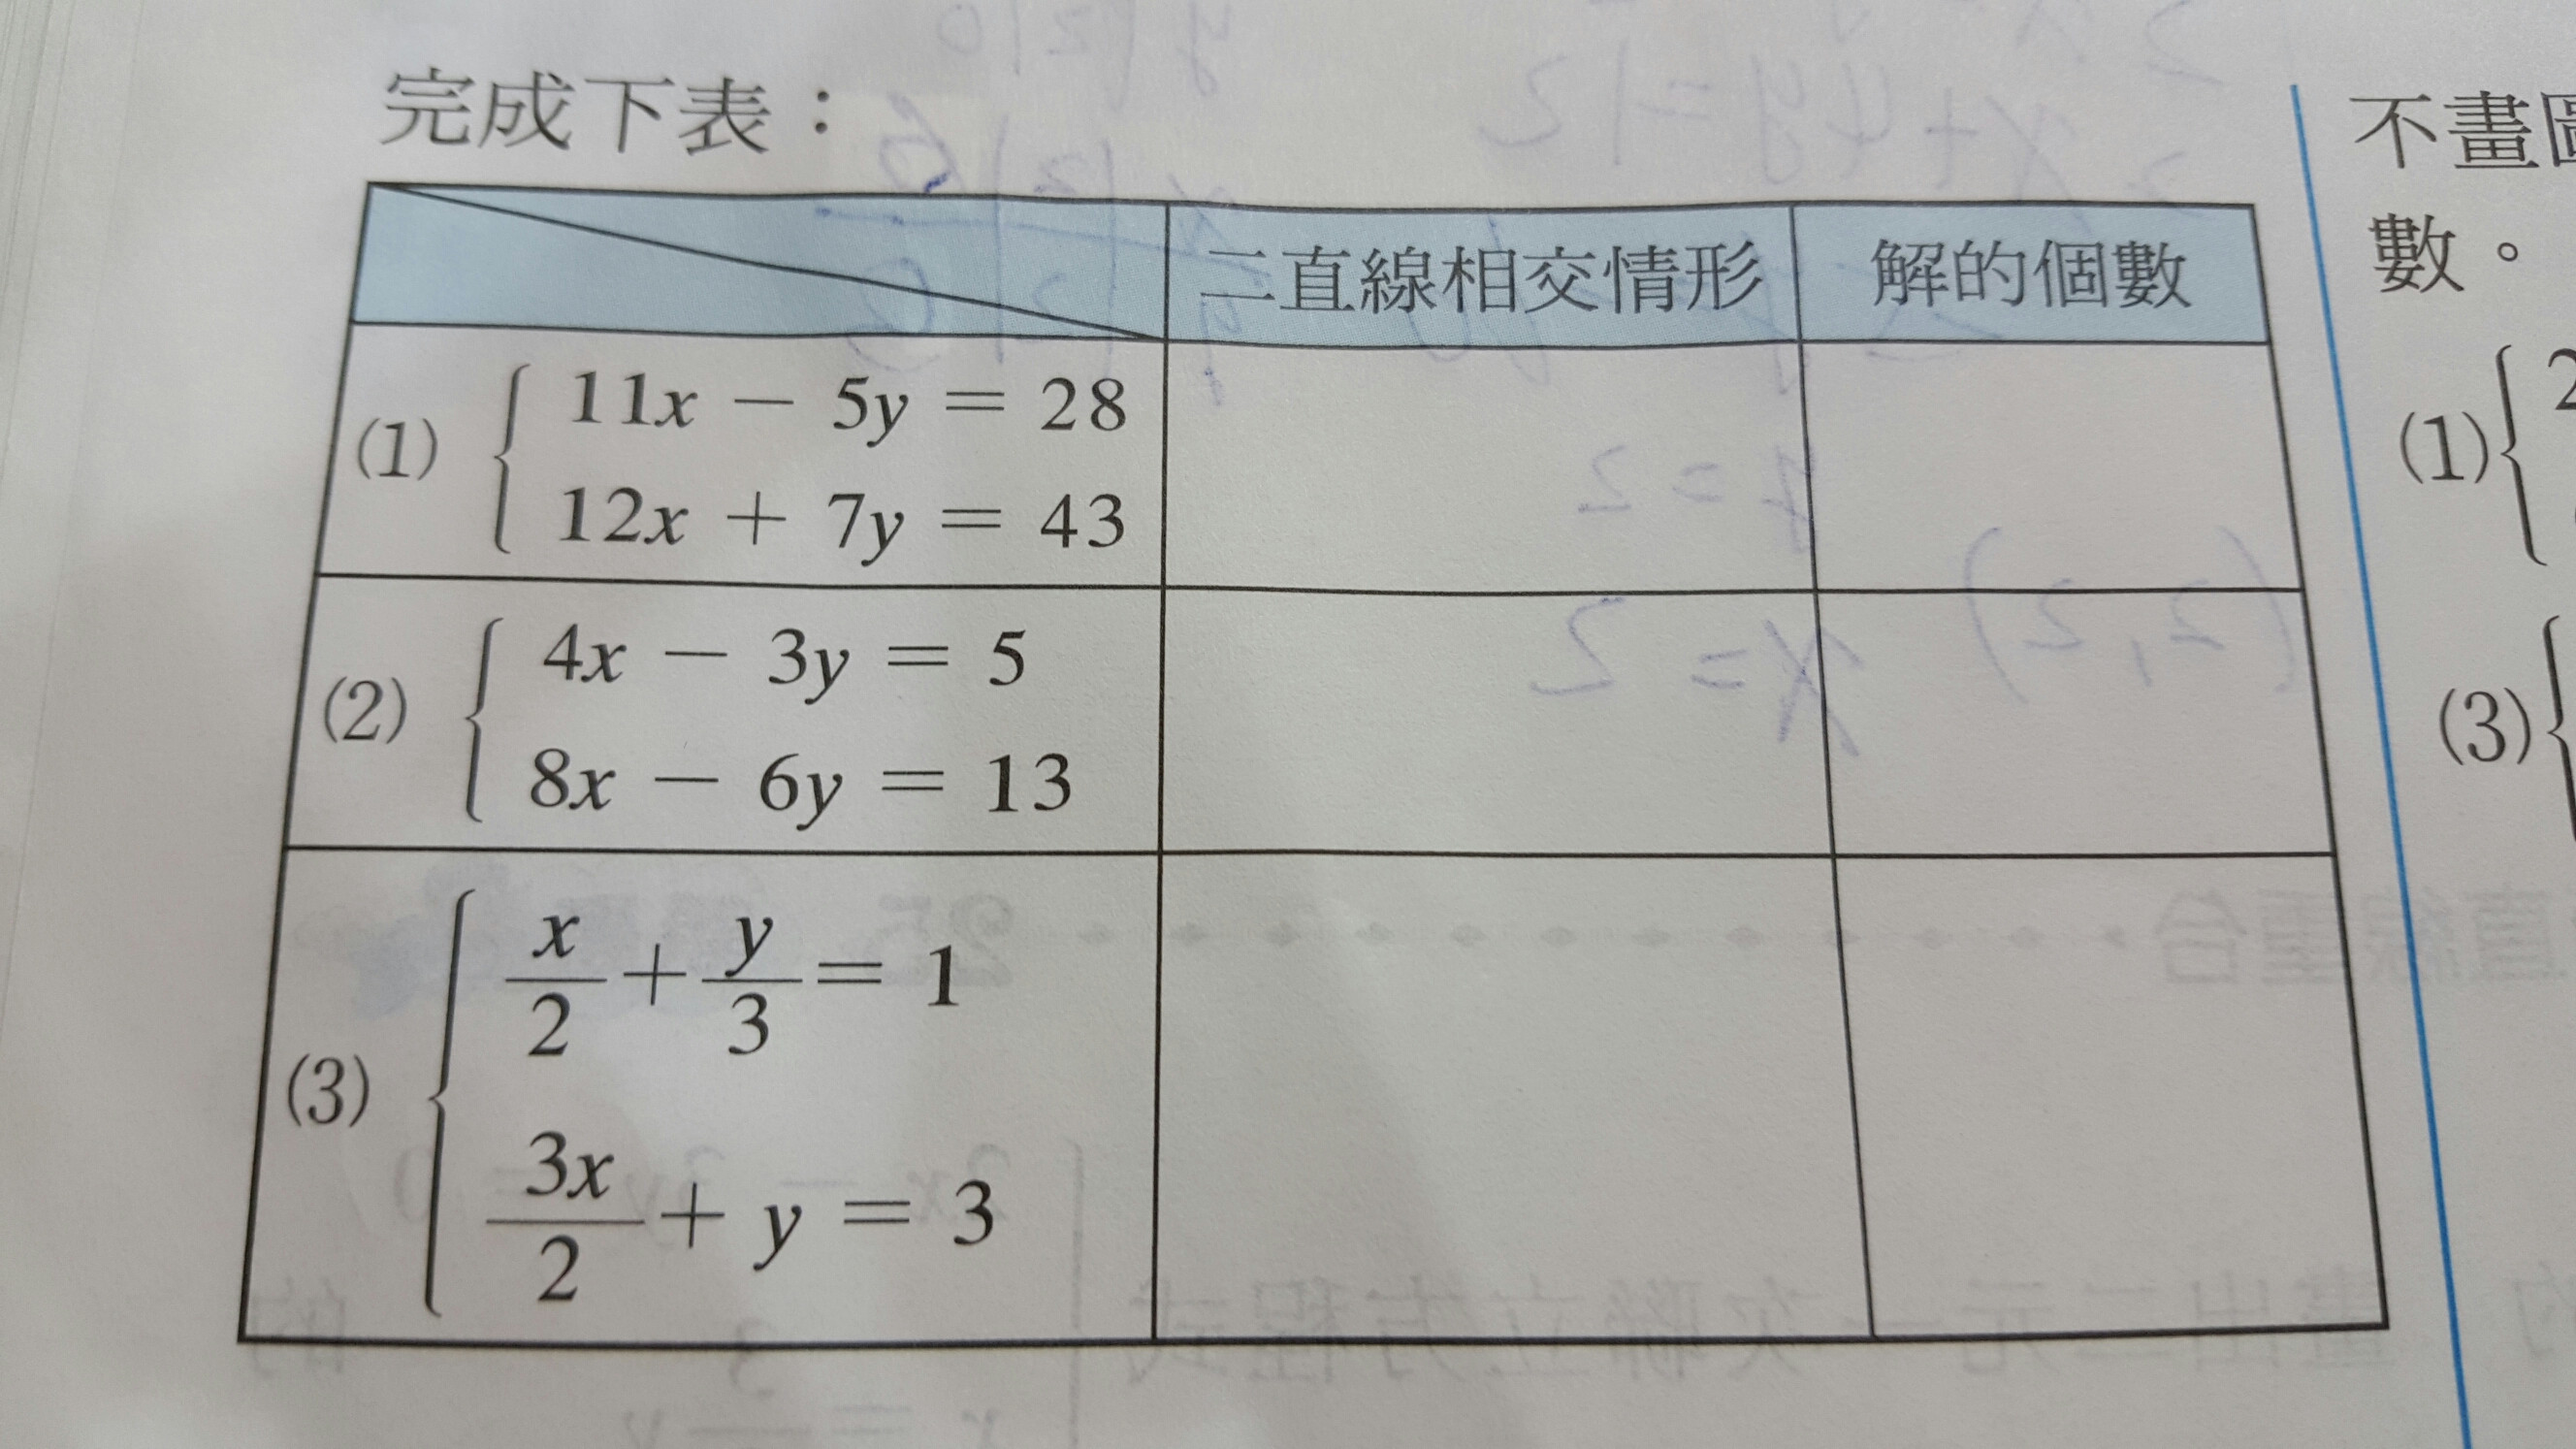 完成下表：
二直線相交情形 解的個數
(1) { 11x − 5y = 28
12x + 7y = 43
(2) { 4x − 3y = 5
8x − 6y = 13
(3) { x/2 + y/3 = 1
3x/2 + y = 3
不畫
數。
(1) {
(3) {